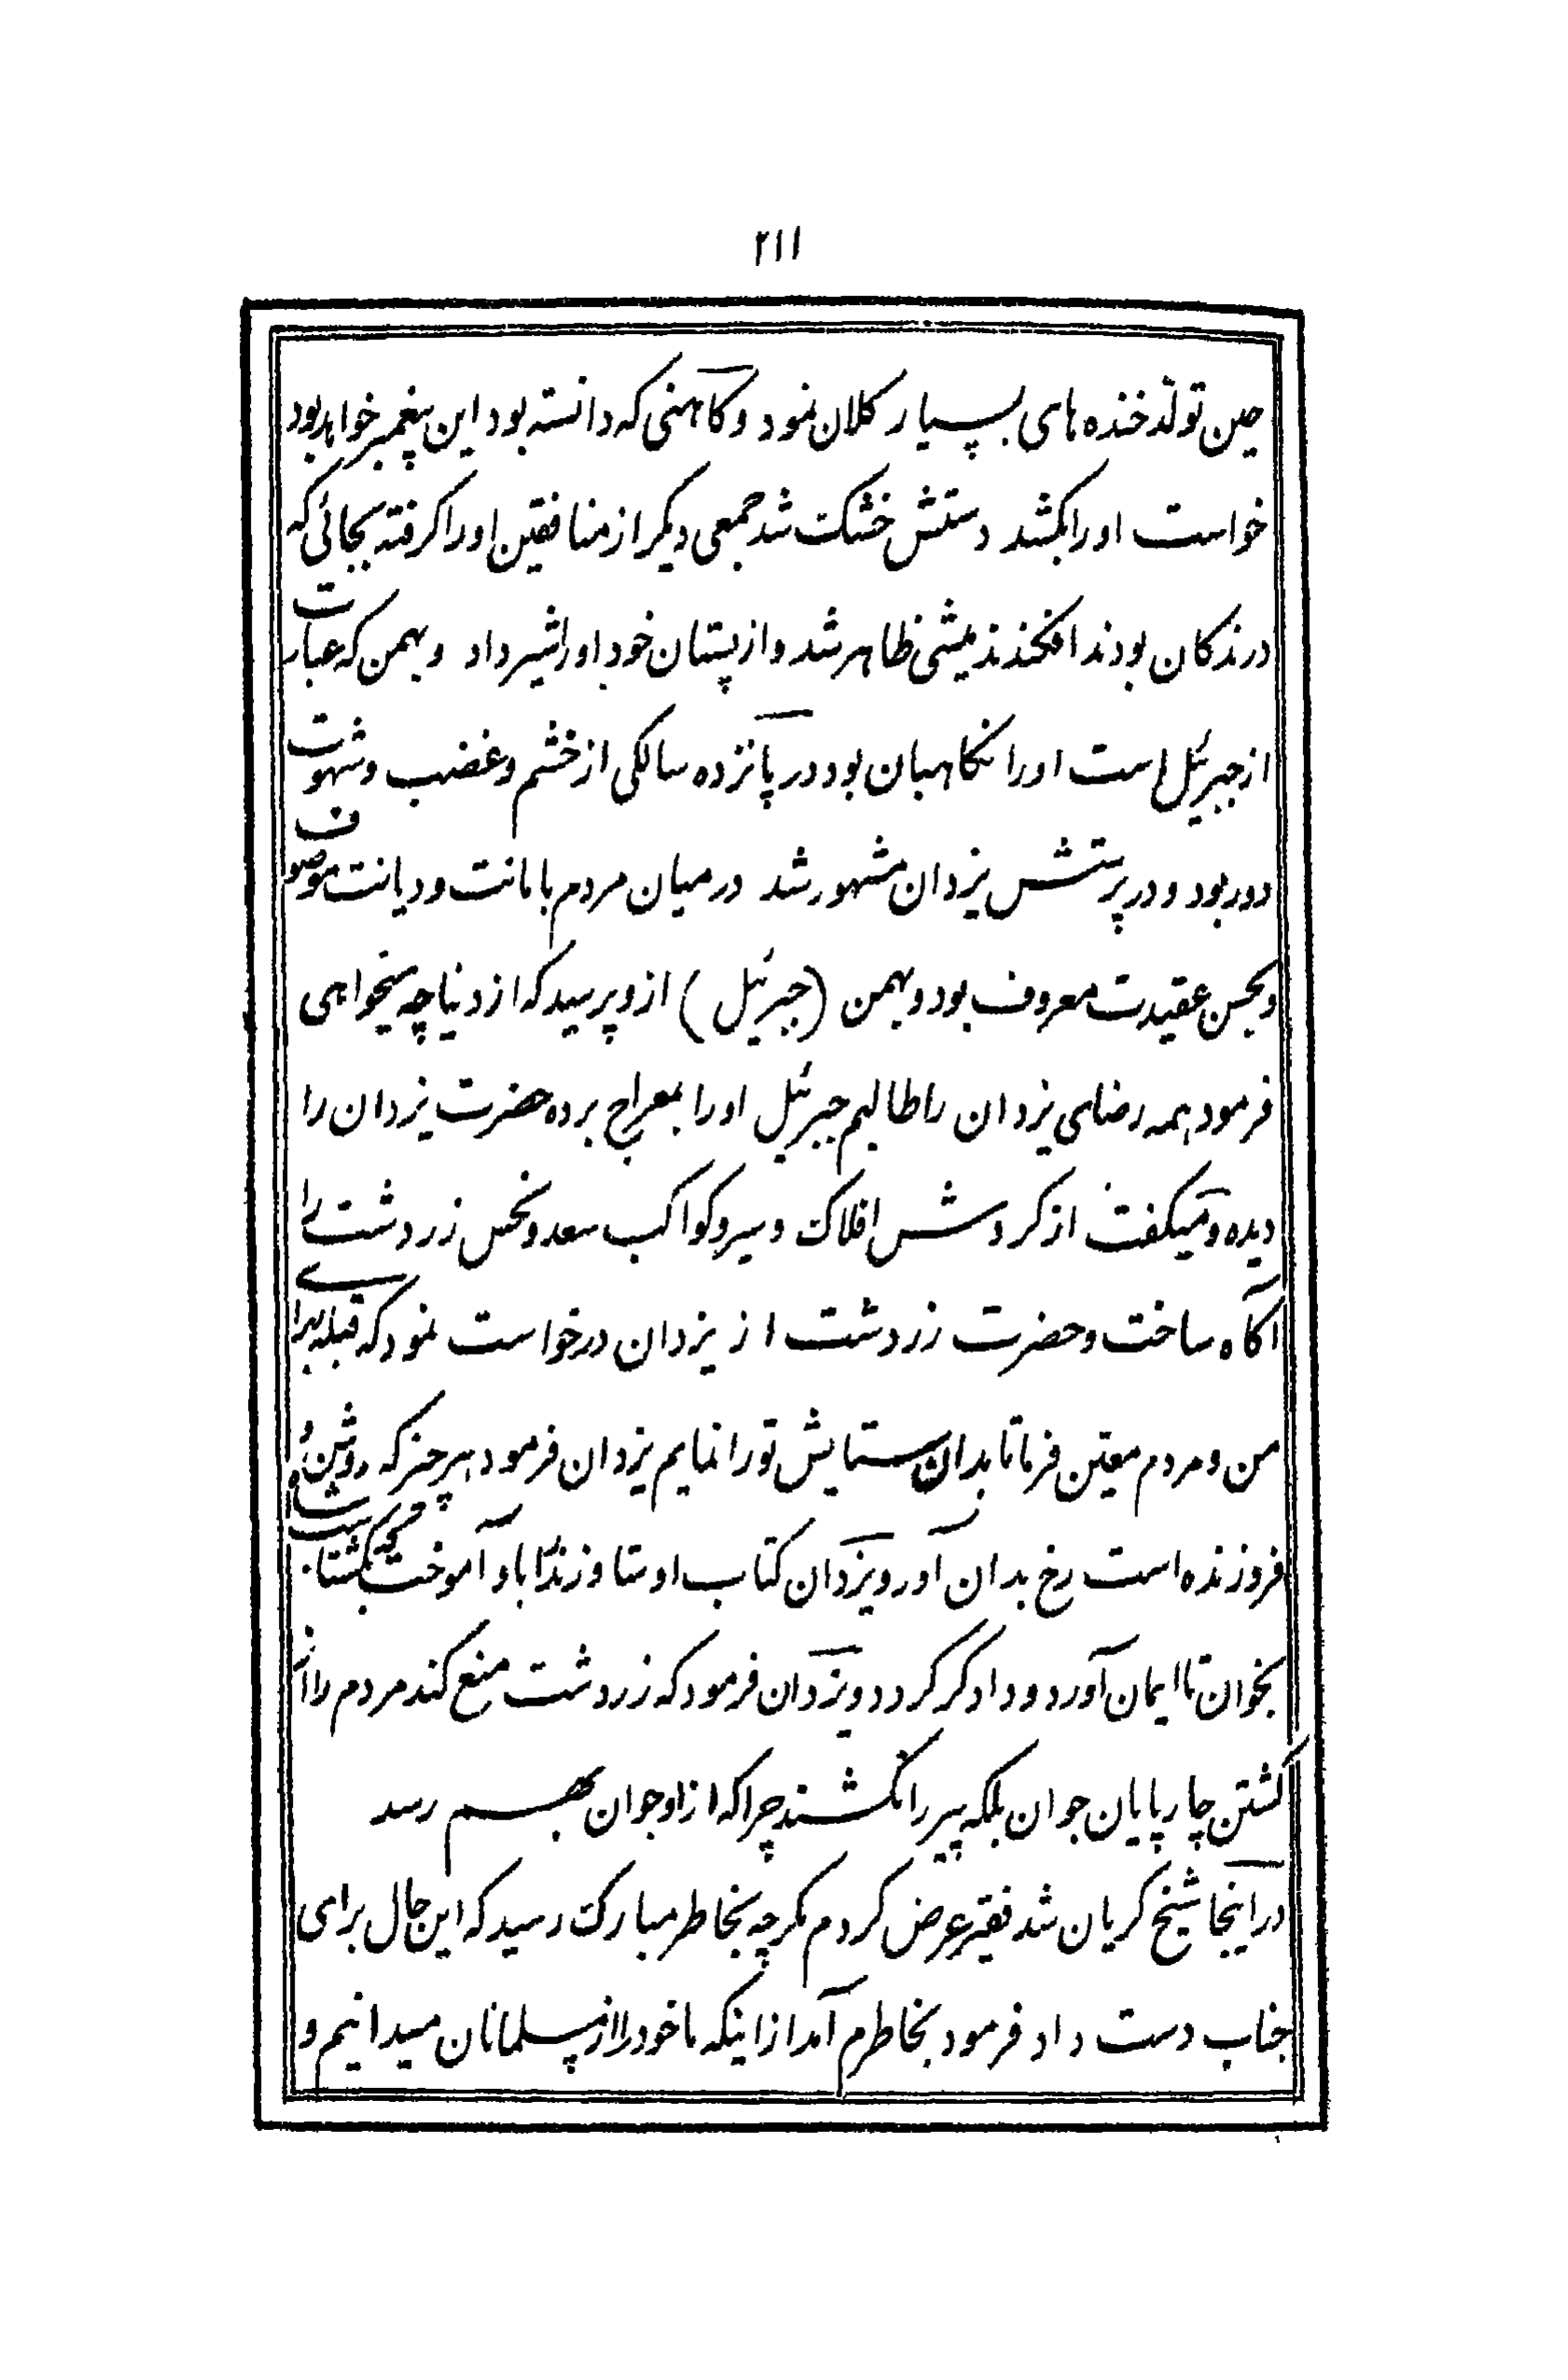 ۲۱۱
حین تولّد خنده های بسیار کلان نمود و کاهنی که دانسته بود این پیغمبر خواهد بود
خواست او را بکشد دستش خشک شد جمعی دیکر از منافقین او را کرفته بجائی که
درندکان بودند افکندند میشی ظاهر شد و از پستان خود او را شیر داد و بهمن که عبارت
از جبرئیل است او را نکاهبان بود در پانزده سالکی از خشم و غضب و شهوت
دور بود و در پرستش یزدان مشهور شد در میان مردم با مانت و دیانت موصوف
و بحسن عقیدت معروف بود و بهمن (جبرئیل) از و پرسید که از دنیا چه میخواهی
فرمود همه رضای یزدان را طالبم جبرئیل او را بمعراج برده حضرت یزدان را
دیده و میکفت از کردش افلاک و سیر و کواکب سعد و نحس زردشت را
آکاه ساخت و حضرت زردشت از یزدان درخواست نمود که قبله برای
من و مردم معین فرما تا بدان ستایش تو را نمایم یزدان فرمود هر چیز که روشن و
فروزنده است رخ بدان آور و یزدان کتاب اوستا و زند را باو آموخت که بکشتاسب
بخوان تا ایمان آورد و دادکر کردد و یزدان فرمود که زردشت منع کند مردم را از
کشتن چارپایان جوان بلکه پیر را نکشند چرا که از او جوان بهم رسد
در اینجا شیخ کریان شد فقیر عرض کردم مکر چه بخاطر مبارک رسید که این حال برای
جناب دست داد فرمود بخاطرم آمد از اینکه ما خود را از مسلمانان میدانیم و